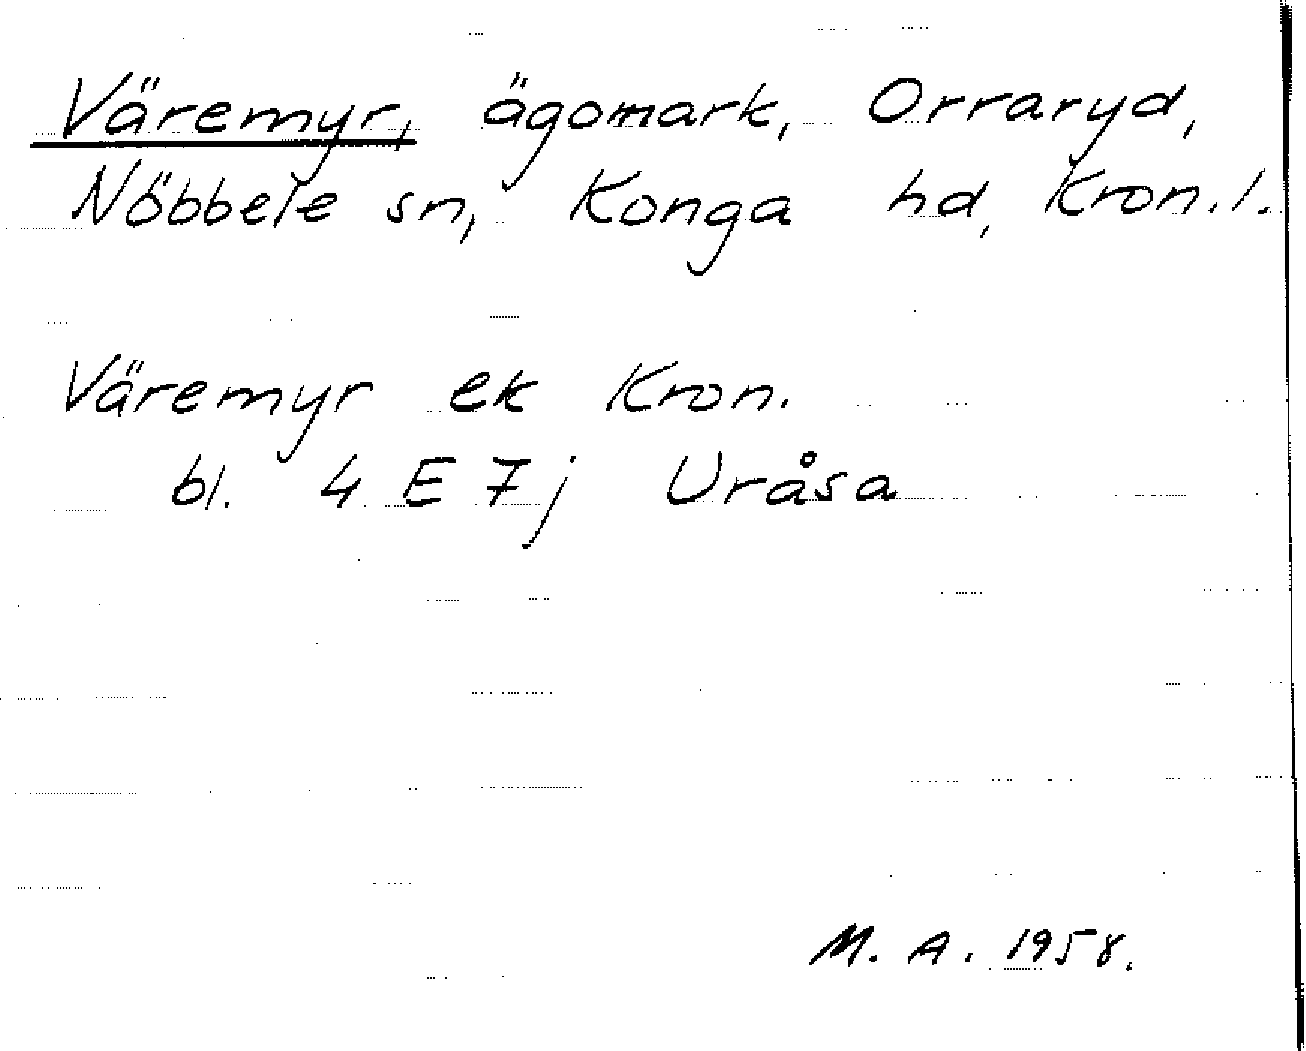 Väremyr, ägomark, Orraryd,
Nöbbele sn, Konga hd, Kron. l.
Väremyr ek Kron.
bl. 4 E 7j Uråsa
M. A. 1958.